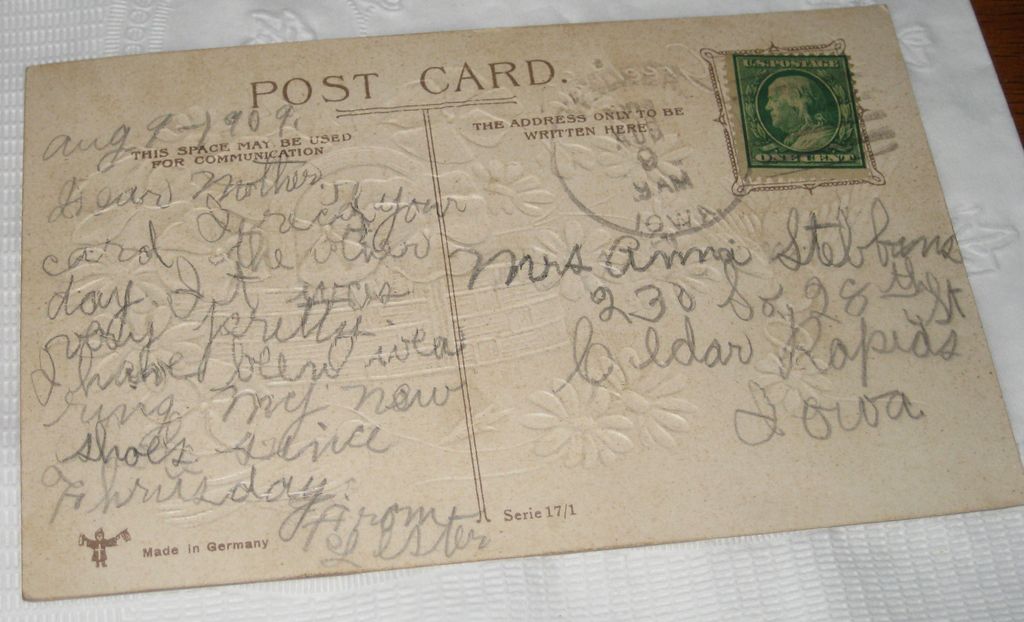 POST CARD.
Aug 9-1909.
THIS SPACE MAY BE USED
FOR COMMUNICATION
THE ADDRESS ONLY TO BE
WRITTEN HERE
U.S. POSTAGE
ONE CENT
AUG
9
9 AM
IOWA
Dear Mother.
I recd your
card the other
day. It was
very pretty.
I have been wea
ring my new
shoes since
Thrusday.
From
Lester
Mrs Anna Stebbins
230 So, 28th St
Cedar Rapids
Iowa
Made in Germany
Serie 17/1